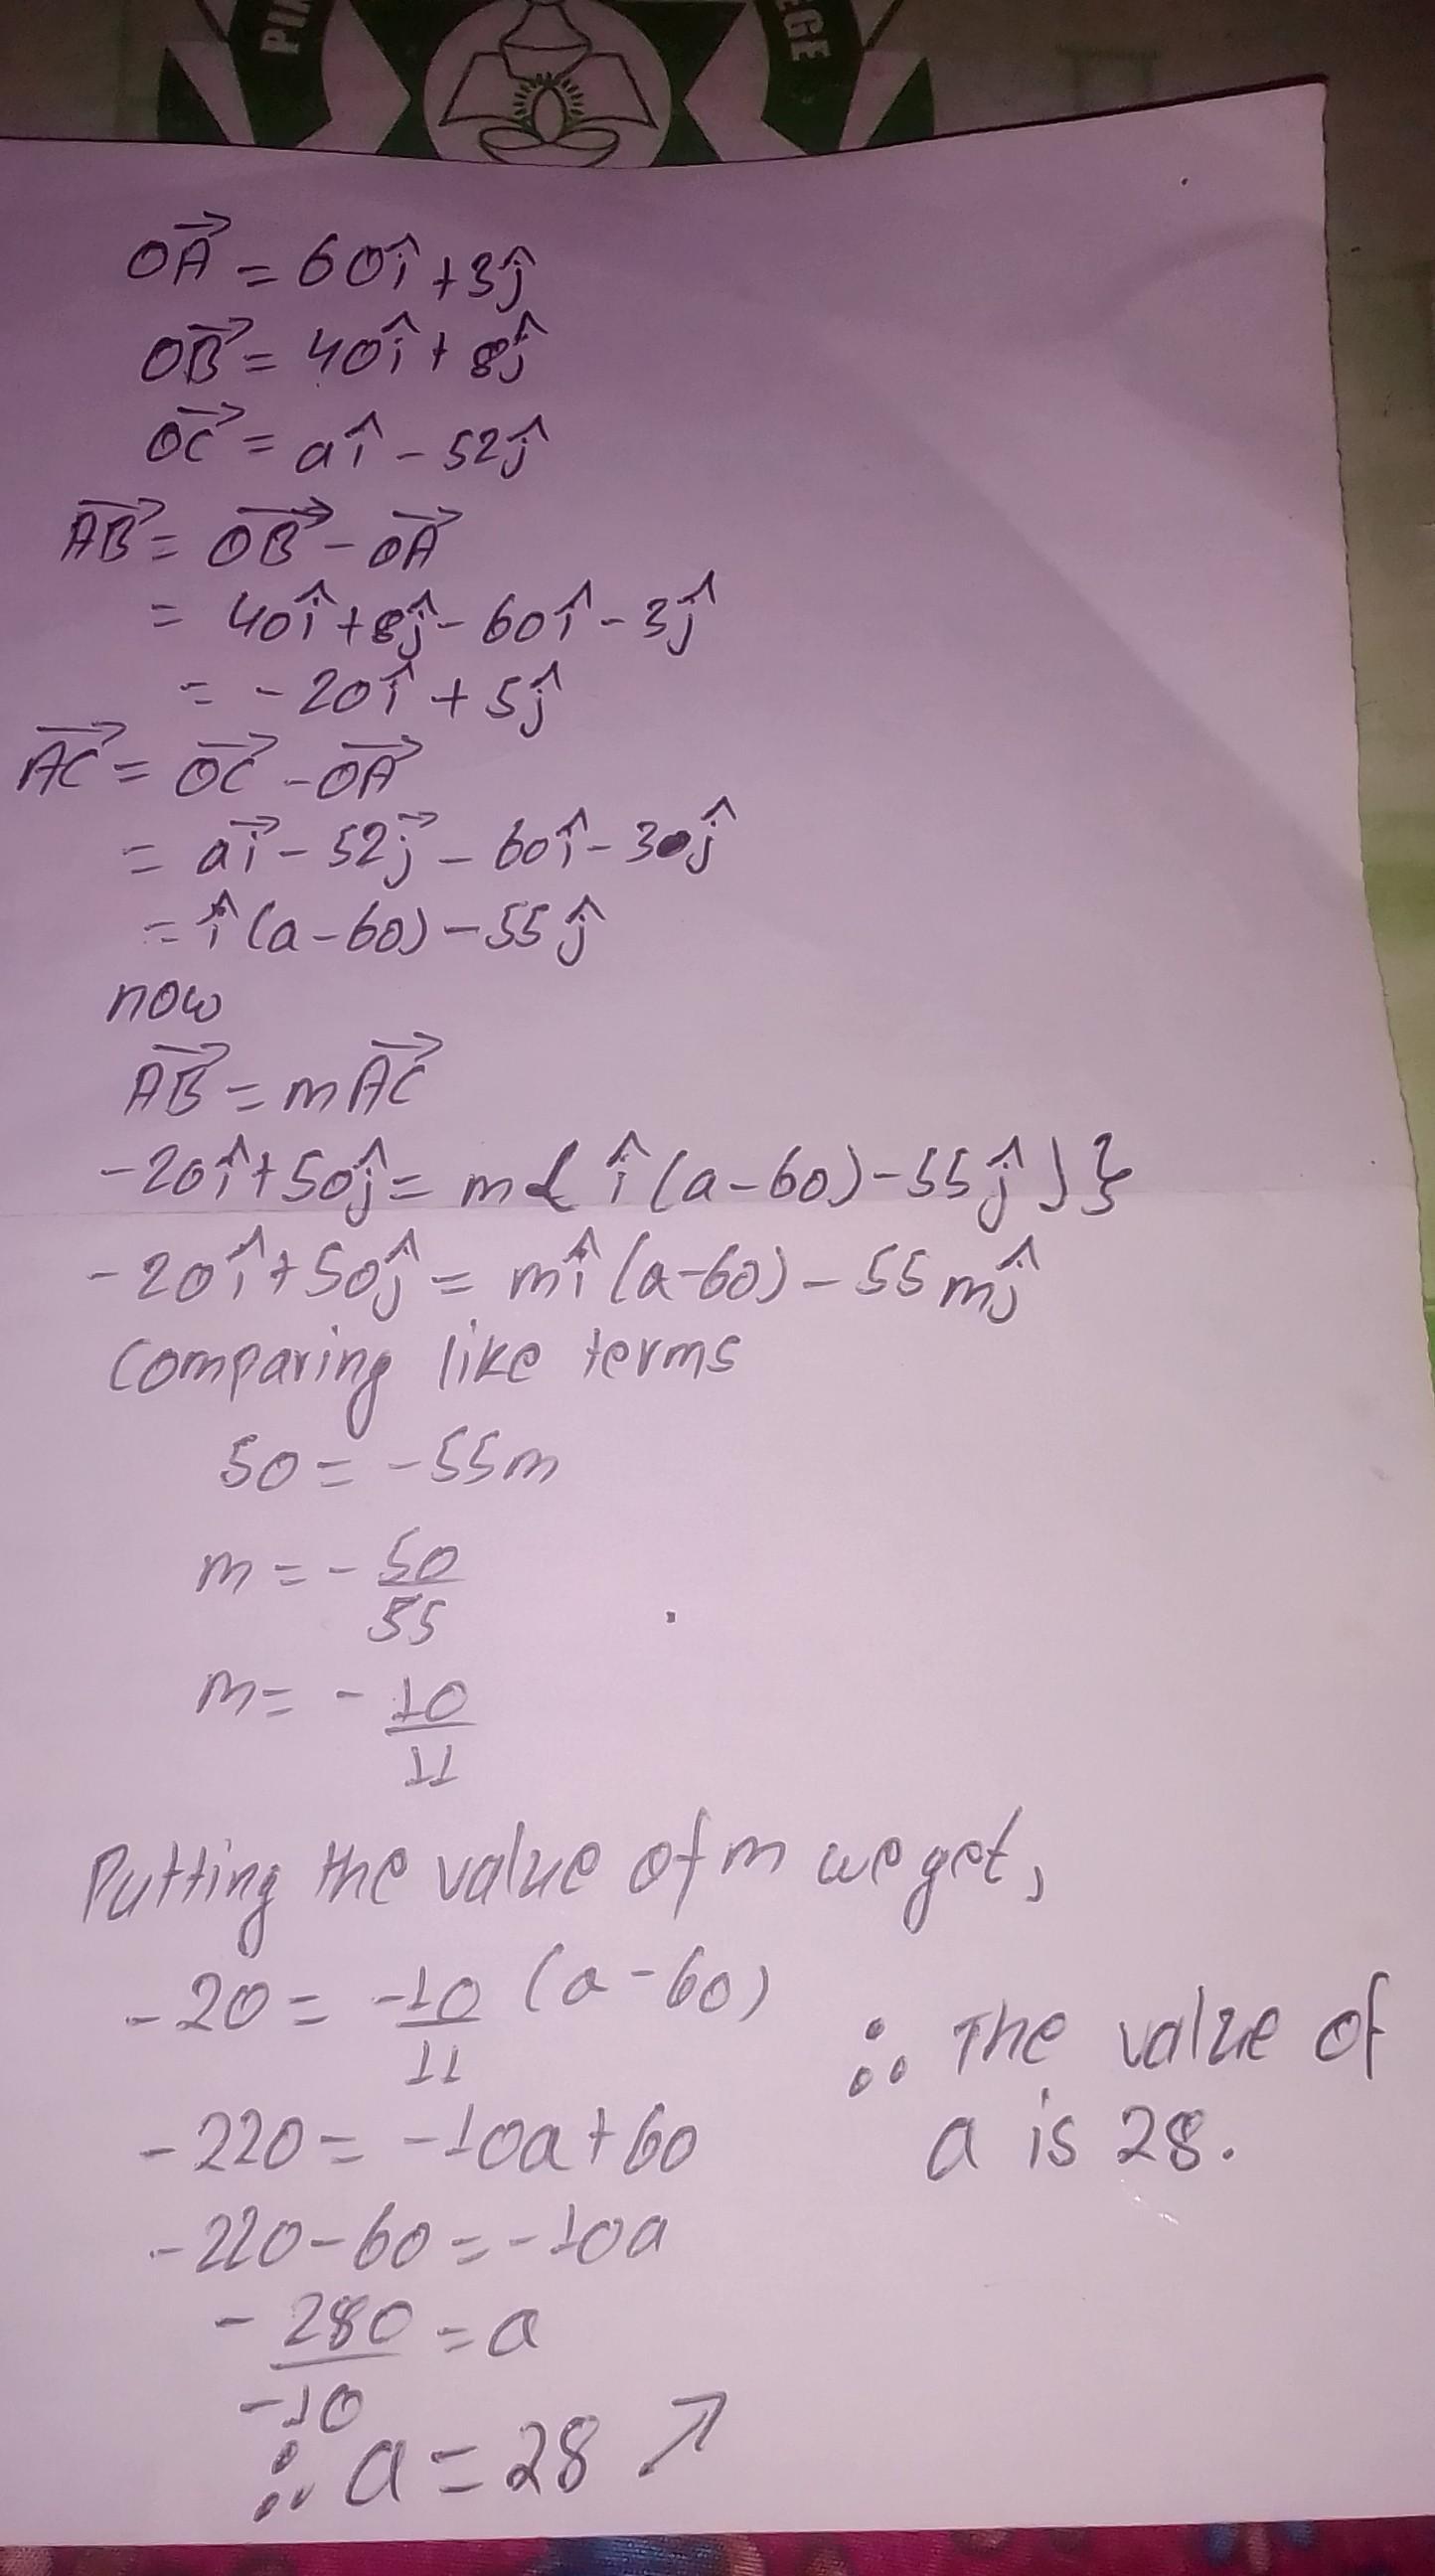 PI
EGE
OA→ = 60î + 3ĵ
OB→ = 40î + 8ĵ
OC→ = aî - 52ĵ
AB→ = OB→ - OA→
= 40î + 8ĵ - 60î - 3ĵ
= -20î + 5ĵ
AC→ = OC→ - OA→
= ai→ - 52j→ - 60î - 30ĵ
= î(a-60) - 55ĵ
now
AB→ = mAC→
-20î + 50ĵ = m{ î(a-60) - 55ĵ)}
-20î + 50ĵ = mî(a-60) - 55mĵ
Comparing like terms
50 = -55m
m = - 50/55
m = - 10/11
Putting the value of m we get,
-20 = -10/11 (a-60)
-220 = -10a + 60
-220 - 60 = -10a
-280/-10 = a
∴ a = 28
∴ The value of
a is 28.